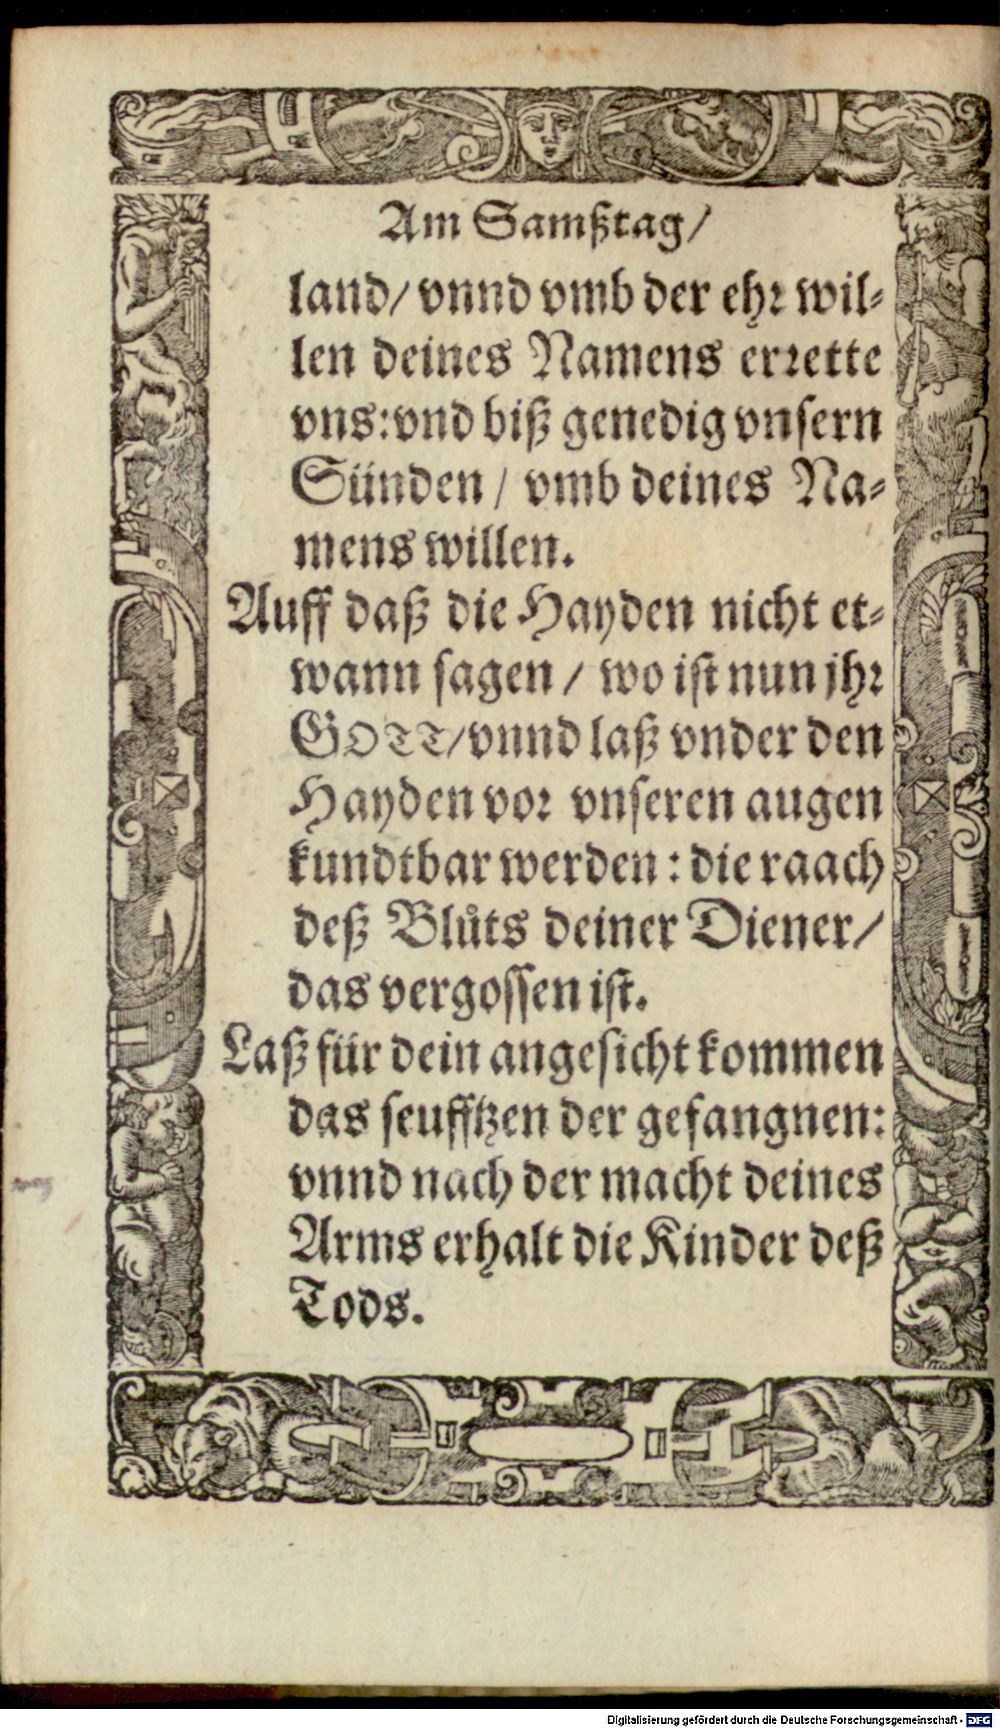 Am Samßtag/
land/ vnnd vmb der ehr wil⸗
len deines Namens errette
vns: vnd biß genedig vnsern
Sünden / vmb deines Na⸗
mens willen.
Auff daß die Hayden nicht et⸗
wann sagen / wo ist nun jhr
GOTT/ vnnd laß vnder den
Hayden vor vnseren augen
kundtbar werden: die raach
deß Blůts deiner Diener/
das vergossen ist.
Laß für dein angesicht kommen
das seufftzen der gefangnen:
vnnd nach der macht deines
Arms erhalt die Kinder deß
Tods.
Digitalisierung gefördert durch die Deutsche Forschungsgemeinschaft - DFG